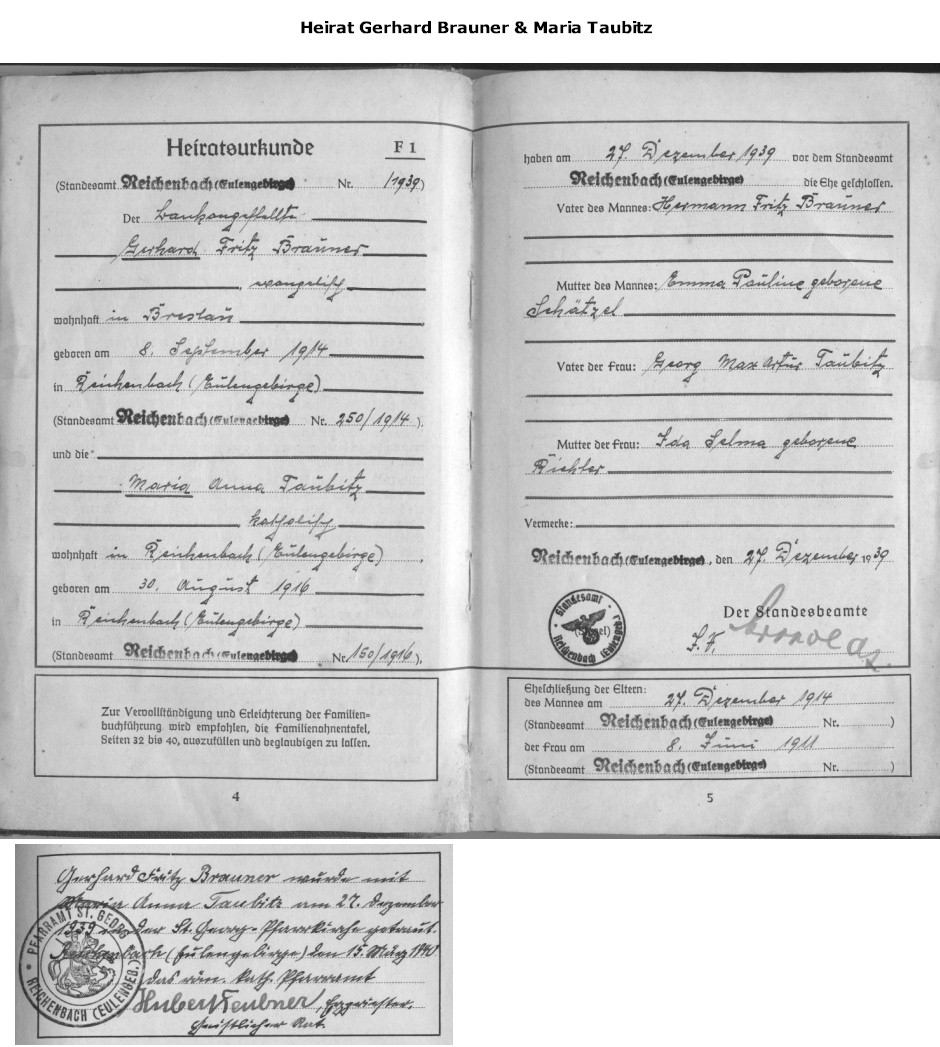 Heirat Gerhard Brauner & Maria Taubitz
Heiratsurkunde F 1
(Standesamt Reichenbach (Eulengebirge) Nr. /1939)
Der Bankangestellte
Gerhard Fritz Brauner
, evangelisch
wohnhaft in Breslau
geboren am 8. September 1914
in Reichenbach (Eulengebirge)
(Standesamt Reichenbach (Eulengebirge) Nr. 250/1914),
und die
Maria Anna Taubitz
, katholisch
wohnhaft in Reichenbach (Eulengebirge),
geboren am 30. August 1916
in Reichenbach (Eulengebirge)
(Standesamt Reichenbach (Eulengebirge) Nr. 150/1916),
Zur Vervollständigung und Erleichterung der Familien-
buchführung wird empfohlen, die Familienahnentafel,
Seiten 32 bis 40, auszufüllen und beglaubigen zu lassen.
4
haben am 27. Dezember 1939 vor dem Standesamt
Reichenbach (Eulengebirge) die Ehe geschlossen.
Vater des Mannes: Hermann Fritz Brauner
Mutter des Mannes: Emma Pauline geborene
Schätzel
Vater der Frau: Georg Max Artur Taubitz
Mutter der Frau: Ida Selma geborene
Richter
Vermerke:
Reichenbach (Eulengebirge), den 27. Dezember 1939
Der Standesbeamte
(Siegel)
Standesamt
Reichenbach (Eulengeb)
J. V.
Eheschließung der Eltern:
des Mannes am 27. Dezember 1914
(Standesamt Reichenbach (Eulengebirge) Nr. )
der Frau am 8. Juni 1911
(Standesamt Reichenbach (Eulengebirge) Nr. )
5
Gerhard Fritz Brauner wurde mit
Maria Anna Taubitz am 27. Dezember
1939 in der St. Georg-Pfarrkirche getraut.
Reichenbach (Eulengebirge) den 15. März 1940
das röm. kath. Pfarramt
Hubert Teubner, Erzpriester.
Geistlicher Rat.
PFARRAMT ST. GEORG
REICHENBACH (EULENGEB.)